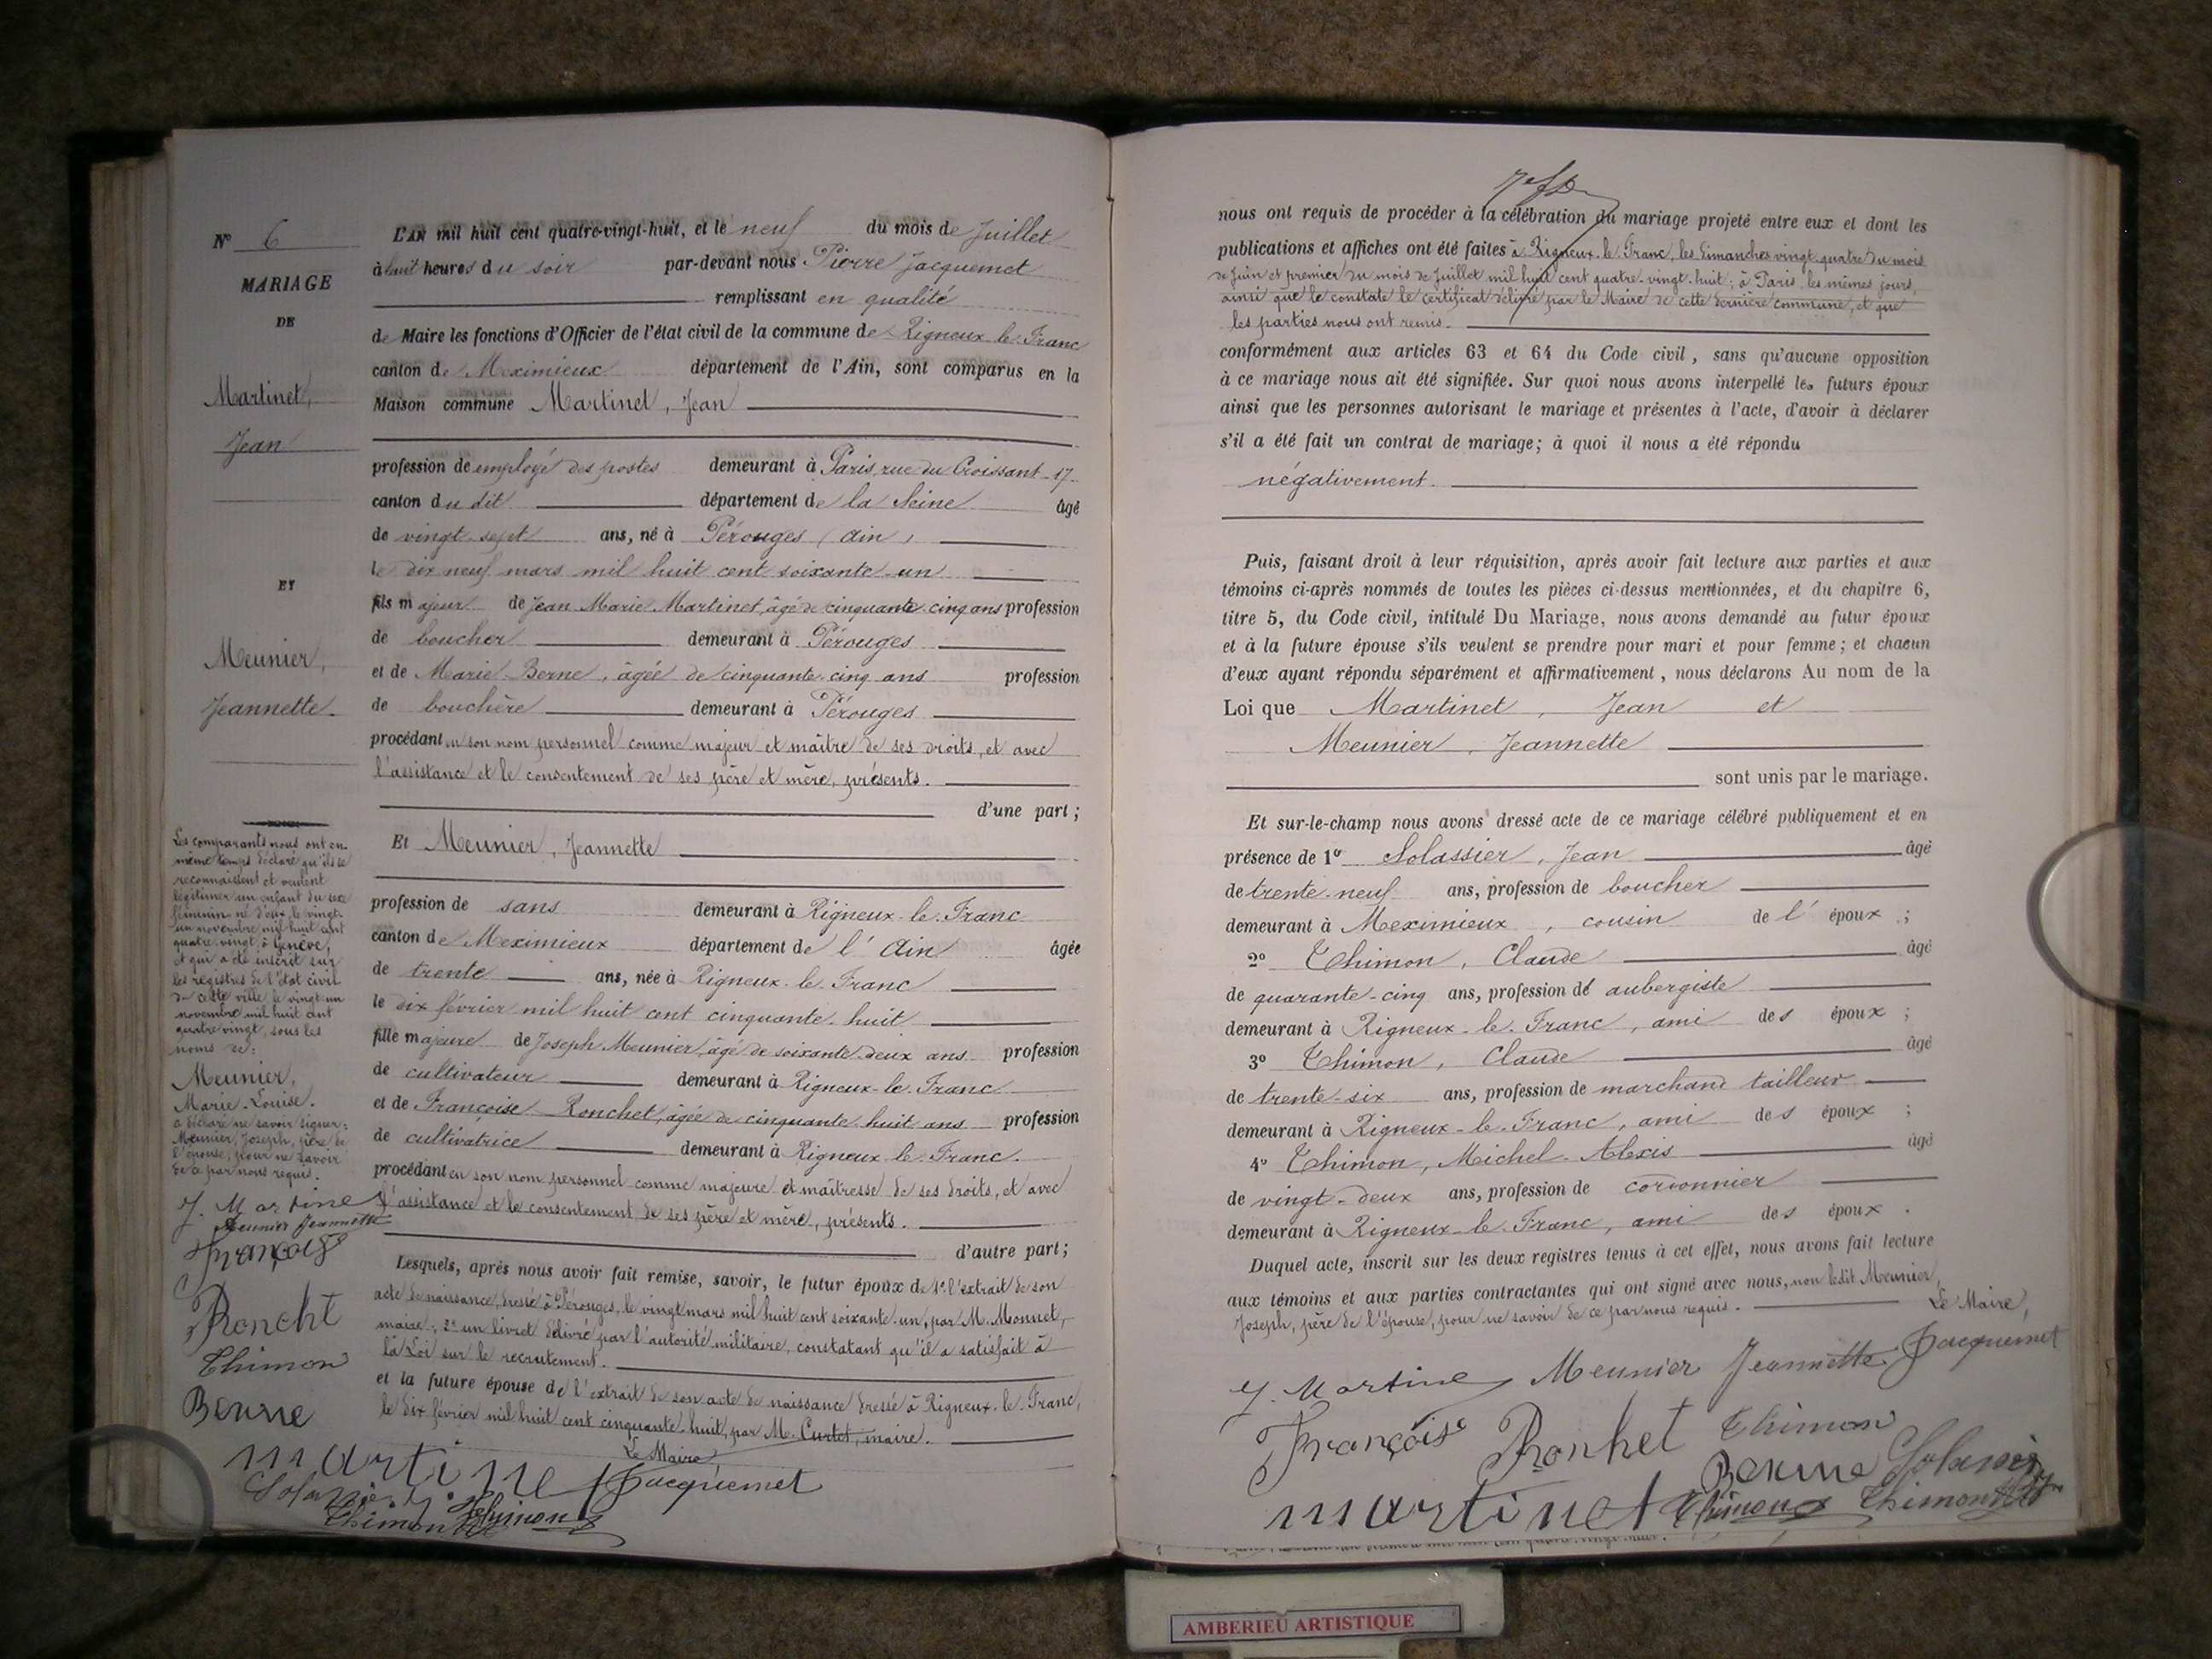 N° 6
MARIAGE
DE
Martinet,
Jean
ET
Meunier,
Jeannette.
Les comparants nous ont en
même temps déclaré qu'ils se
reconnaissent et veulent
légitimer un enfant du sexe
féminin né d'eux le vingt-
un novembre mil huit cent
quatre vingt à Genève,
et qui a été inscrit sur
les registres de l'état civil
de cette ville le vingt un
novembre mil huit cent
quatre vingt, sous les
noms de:
Meunier,
Marie-Louise.
a déclaré ne savoir signer:
Meunier, Joseph, père de
l'épouse, pour ne savoir
de ce par nous requis.
J. Martinet
Meunier Jeannette
Françoise
Roncht
Thimon
Berne
martinet
L'AN mil huit cent quatre-vingt-huit, et le neuf du mois de Juillet
à huit heures du soir par-devant nous Pierre Jacquemet
remplissant en qualité
de Maire les fonctions d'Officier de l'état civil de la commune de Rigneux-le-Franc
canton de Meximieux département de l'Ain, sont comparus en la
Maison commune Martinet, Jean
profession de employé des postes demeurant à Paris, rue du Croissant-17-
canton du dit département de la Seine âgé
de vingt-sept ans, né à Pérouges (Ain)
le dix neuf mars mil huit cent soixante-un
fils majeur de Jean Marie Martinet, âgé de cinquante-cinq ans profession
de boucher demeurant à Pérouges
et de Marie Berne, âgée de cinquante-cinq ans profession
de bouchère demeurant à Pérouges
procédant en son nom personnel comme majeur et maître de ses droits, et avec
l'assistance et le consentement de ses père et mère, présents.
d'une part;
Et Meunier, Jeannette
profession de sans demeurant à Rigneux-le-Franc
canton de Meximieux département de l'Ain âgée
de trente ans, née à Rigneux-le-Franc
le dix février mil huit cent cinquante-huit
fille majeure de Joseph Meunier, âgé de soixante-deux ans profession
de cultivateur demeurant à Rigneux-le-Franc
et de Françoise Ronchet, âgée de cinquante huit ans profession
de cultivatrice demeurant à Rigneux-le-Franc.
procédant en son nom personnel comme majeure et maîtresse de ses droits, et avec
l'assistance et le consentement de ses père et mère, présents.
d'autre part;
Lesquels, après nous avoir fait remise, savoir, le futur époux de 1° l'extrait de son
acte de naissance, dressé à Pérouges, le vingt mars mil huit cent soixante-un, par M. Monnet,
maire; 2° un livret délivré par l'autorité militaire, constatant qu'il a satisfait à
la Loi sur le recrutement.
et la future épouse de l'extrait de son acte de naissance dressé à Rigneux-le-Franc,
le dix février mil huit cent cinquante-huit, par M. Curtet, maire.
Le Maire,
Jacquemet
Thimon
nous ont requis de procéder à la célébration du mariage projeté entre eux et dont les
publications et affiches ont été faites à Rigneux-le-Franc, les dimanches vingt-quatre du mois
de Juin et premier du mois de Juillet mil huit cent quatre-vingt-huit; à Paris, les mêmes jours,
ainsi que le constate le certificat délivré par le Maire de cette dernière commune, et que
les parties nous ont remis.
conformément aux articles 63 et 64 du Code civil, sans qu'aucune opposition
à ce mariage nous ait été signifiée. Sur quoi nous avons interpellé les futurs époux
ainsi que les personnes autorisant le mariage et présentes à l'acte, d'avoir à déclarer
s'il a été fait un contrat de mariage; à quoi il nous a été répondu
négativement.
Puis, faisant droit à leur réquisition, après avoir fait lecture aux parties et aux
témoins ci-après nommés de toutes les pièces ci-dessus mentionnées, et du chapitre 6,
titre 5, du Code civil, intitulé Du Mariage, nous avons demandé au futur époux
et à la future épouse s'ils veulent se prendre pour mari et pour femme; et chacun
d'eux ayant répondu séparément et affirmativement, nous déclarons Au nom de la
Loi que Martinet, Jean et
Meunier, Jeannette
sont unis par le mariage.
Et sur-le-champ nous avons dressé acte de ce mariage célébré publiquement et en
présence de 1° Solassier, Jean âgé
de trente-neuf ans, profession de boucher
demeurant à Meximieux, cousin de l'époux;
2° Thimon, Claude âgé
de quarante-cinq ans, profession de aubergiste
demeurant à Rigneux-le-Franc, ami des époux;
3° Thimon, Claude âgé
de trente-six ans, profession de marchand tailleur
demeurant à Rigneux-le-Franc, ami des époux;
4° Thimon, Michel-Alexis âgé
de vingt-deux ans, profession de cordonnier
demeurant à Rigneux-le-Franc, ami des époux.
Duquel acte, inscrit sur les deux registres tenus à cet effet, nous avons fait lecture
aux témoins et aux parties contractantes qui ont signé avec nous, non ledit Meunier,
Joseph, père de l'épouse, pour ne savoir de ce par nous requis.
Le Maire,
J. Martinet Meunier Jeannette Jacquemet
Françoise Ronhet Thimon
martinet Berne
Thimon Thimon
AMBERIEU ARTISTIQUE